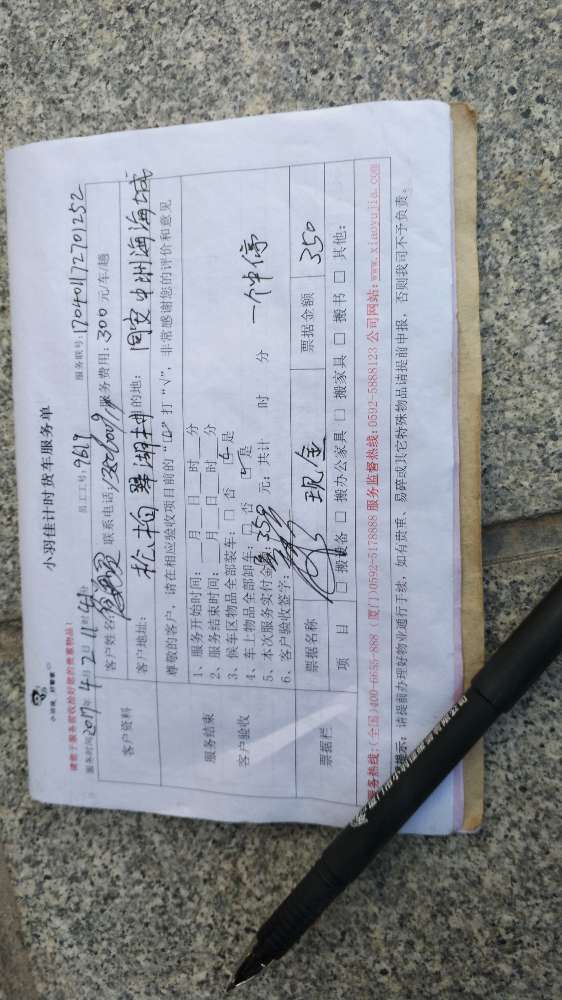 小羽佳计时货车服务单
小羽佳 好管家
请您于服务前收拾好您的贵重物品!
服务时间:2017年4月2日11时41
员工工号:9619
服务联号:170401172701252
客户资料
客户姓名:
联系电话
服务费用:300元/车/趟
客户地址:松柏
的地:同安中洲海海城
尊敬的客户,请在相应验收项目前的“□”打“√”,非常感谢您的评价和意见
服务结束
客户验收
1、服务开始时间:__月__日__时__分
2、服务结束时间:__月__日__时__分
3、候车区物品全部装车:□否 □是
4、车上物品全部卸车:□否 □是
5、本次服务实付金额:350元;共计 时 分 一个中停
6、客户验收签字:
票据栏
票据名称
现金
票据金额
350
项 目
□搬设备 □搬办公家具 □搬家具 □搬书 □其他:
服务热线:(全国)400-6655-888 (厦门)0592-5178888 服务监督热线:0592-5888123 公司网站:www.xiaoyujia.com
提示:请提前办理好物业通行手续,如有贵重、易碎或其它特殊物品请提前申报,否则我司不予负责。